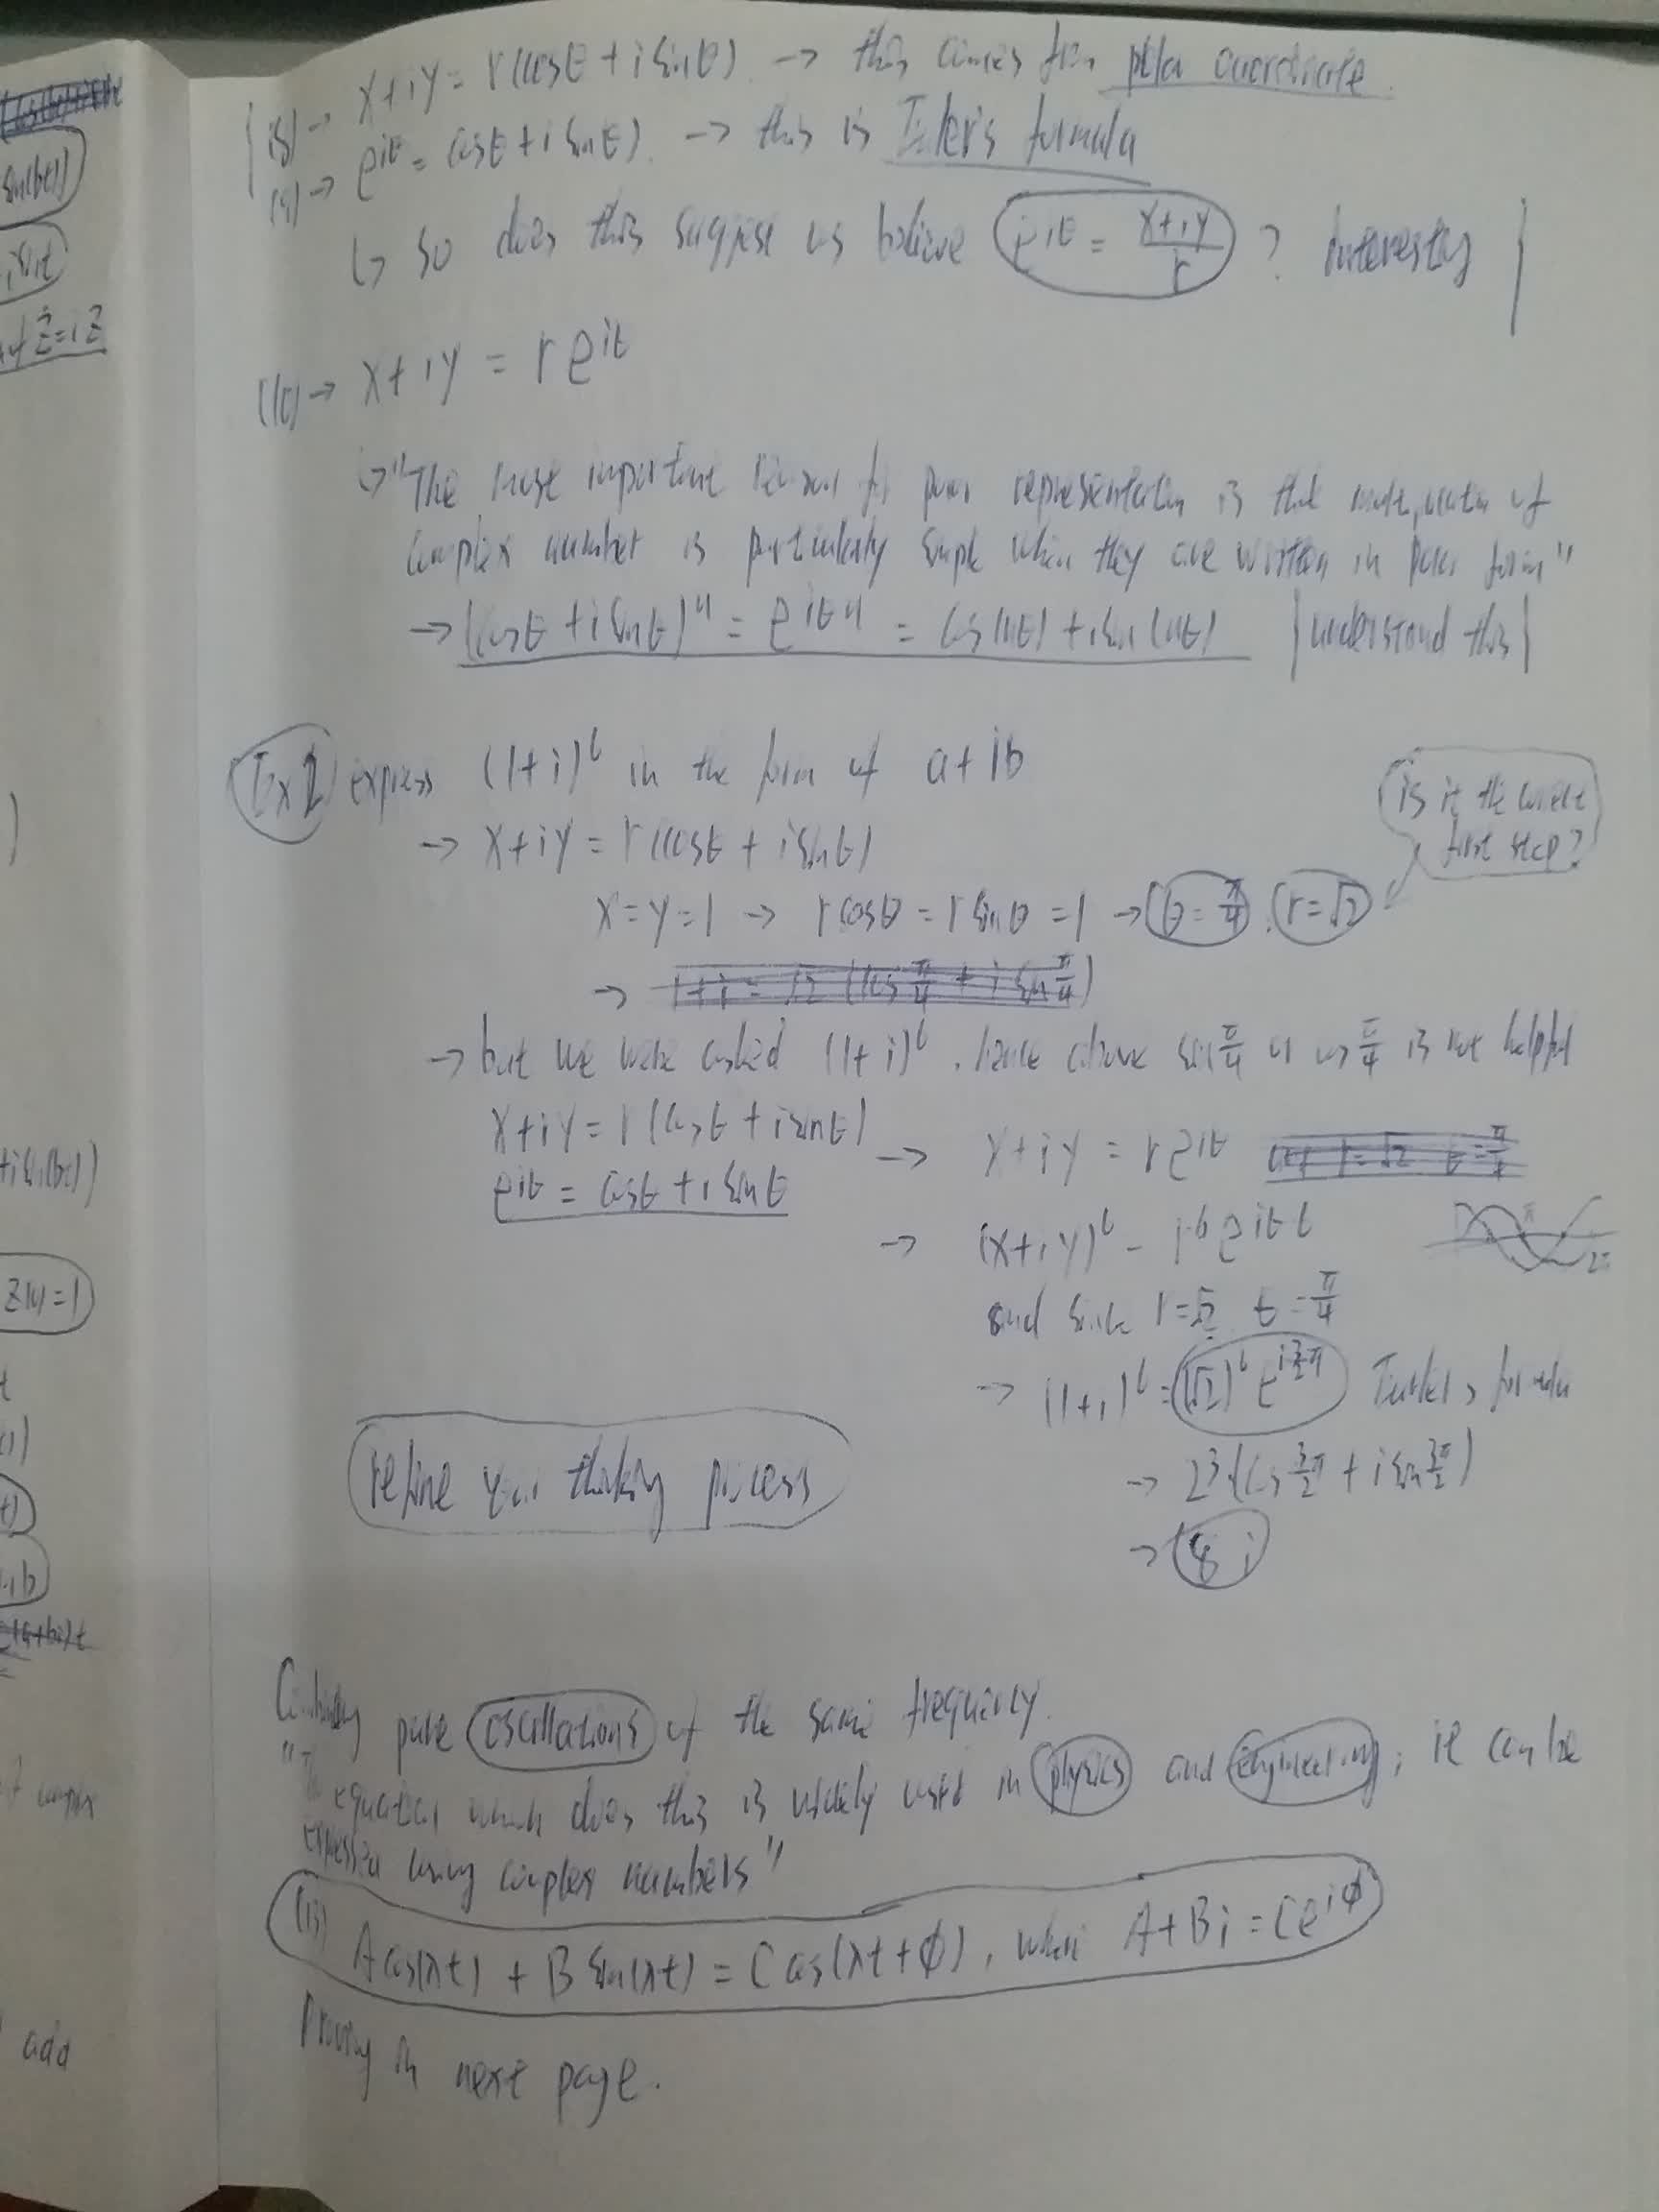 (8) → x+iy = r(cosθ + i sinθ) → this comes from polar coordinate.
(9) → e^iθ = cosθ + i sinθ). → this is Euler's formula
↳ so does this suggest us believe e^iθ = (x+iy)/r ? Interesting
(10) → x+iy = re^iθ
↳ "The most important reason for polar representation is that multiplication of
complex number is particularly simple when they are written in polar form"
→ (cosθ + i sinθ)^n = e^iθn = cos(nθ) + i sin(nθ) | understand this |
Ex 2 express (1+i)^6 in the form of a+ib
→ x+iy = r(cosθ + i sinθ)
is it the correct
first step?
x=y=1 → rcosθ = rsinθ = 1 → θ=π/4, r=√2
→ 1+i = √2 (cos π/4 + i sin π/4)
→ but we were asked (1+i)^6, hence above sin π/4 or cos π/4 is not helpful
x+iy = r(cosθ + i sinθ) → x+iy = re^iθ r=√2 θ=π/4
e^iθ = cosθ + i sinθ
→ (x+iy)^6 = r^6 e^iθ6
π 2π
and since r=√2, θ=π/4
→ (1+i)^6 = (√2)^6 e^i3/2π Euler's formula
refine your thinking process
→ 2^3 (cos 3π/2 + i sin 3π/2)
→ 8i
Combining pure oscillations of the same frequency.
"The equation which does this is widely used in physics and engineering; it can be
expressed using complex numbers"
A cos(λt) + B sin(λt) = C cos(λt + φ), when A+Bi = Ce^iφ
Proving in next page.
sin(bt)
ż=iz
z(0)=1
add